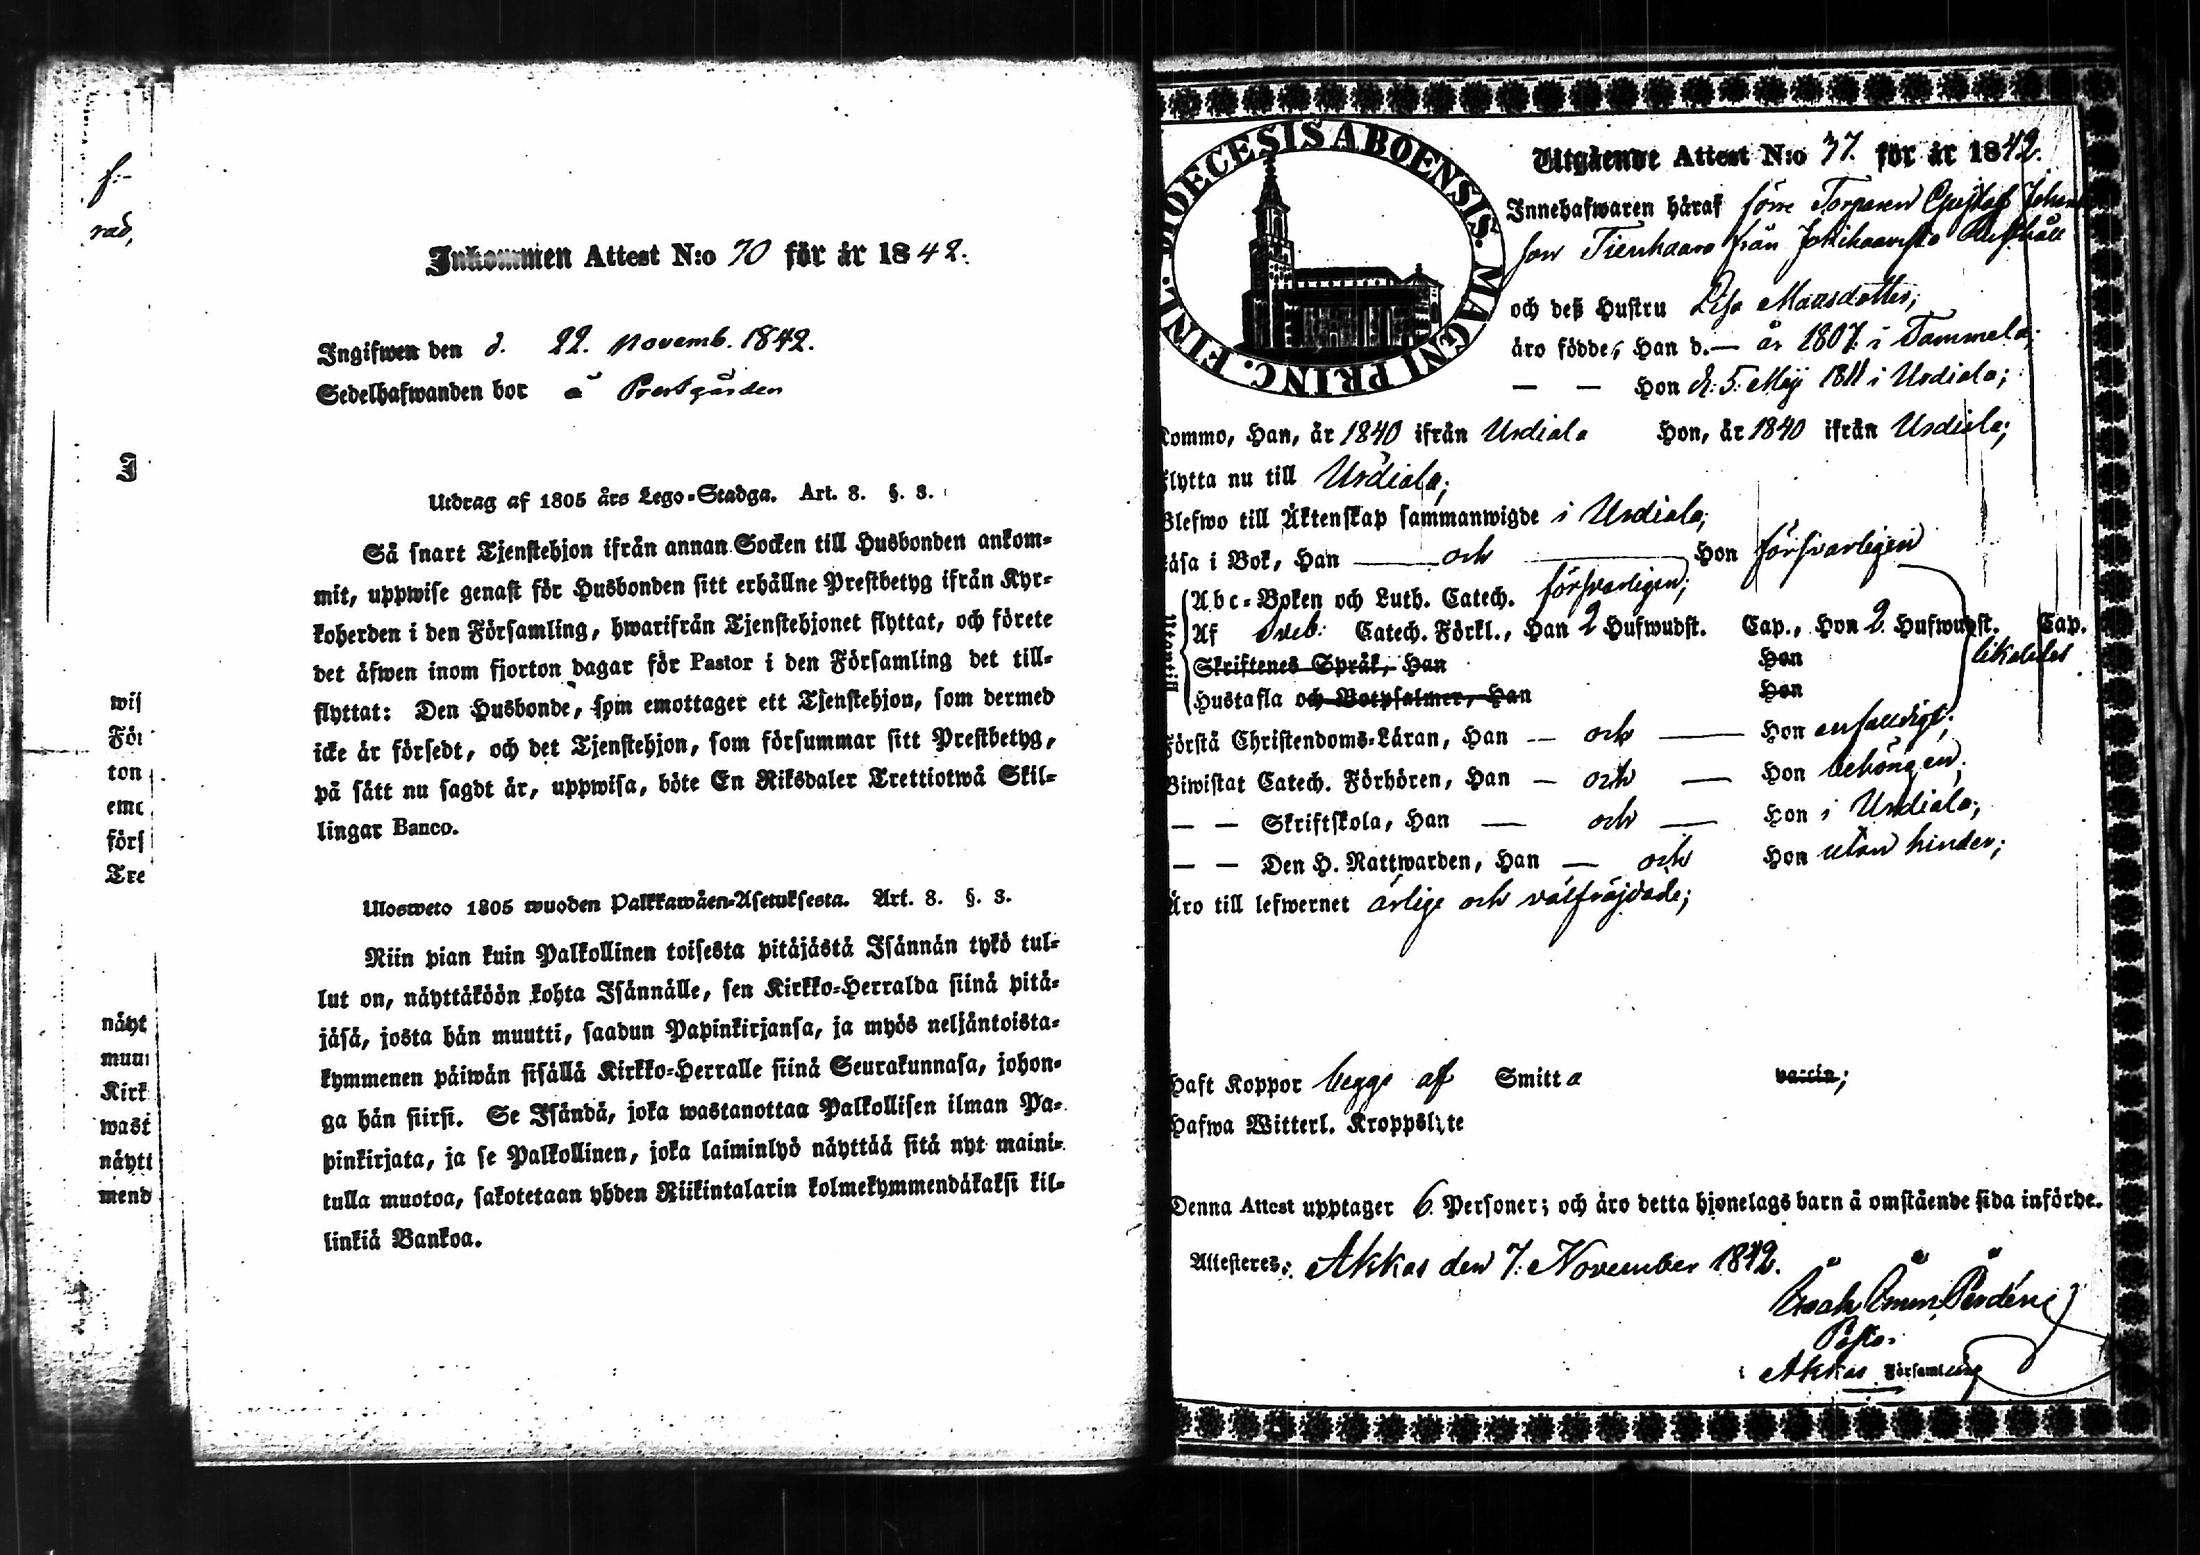 f:-
rad,
I
wis
För
ton
emo
förs
Tre
näyt
muu
Kirk
wast
näytt
mend
Inkommen Attest N:o 70 för år 1842.
Ingifwen den d. 22. Novemb. 1842.
Sedelhafwanden bor å Prestgården
Utdrag af 1805 års Lego-Stadga. Art. 8. §. 3.
Så snart Tjenstehjon ifrån annan Socken till Husbonden ankom-
mit, uppwise genast för Husbonden sitt erhållne Prestbetyg ifrån Kyr-
koherden i den Församling, hwarifrån Tjenstehjonet flyttat, och förete
det äfwen inom fjorton dagar för Pastor i den Församling det till-
flyttat: Den Husbonde, som emottager ett Tjenstehjon, som dermed
icke är försedt, och det Tjenstehjon, som försummar sitt Prestbetyg,
på sätt nu sagdt är, uppwisa, böte En Riksdaler Trettiotwå Skil-
lingar Banco.
Ulosweto 1805 wuoden Palkkawäen-Asetuksesta. Art. 8. §. 3.
Niin pian kuin Palkollinen toisesta pitäjästä Isännän tykö tul-
lut on, näyttäköön kohta Isännälle, sen Kirkko-Herralda siinä pitä-
jäsä, josta hän muutti, saadun Papinkirjansa, ja myös neljäntoista-
kymmenen päiwän sisällä Kirkko-Herralle siinä Seurakunnasa, johon-
ga hän siirsi. Se Isändä, joka wastanottaa Palkollisen ilman Pa-
pinkirjata, ja se Palkollinen, joka laiminlyö näyttää sitä nyt maini-
tulla muotoa, sakotetaan yhden Riikintalarin kolmekymmendäkaksi kil-
linkiä Bankoa.
DIOECESIS ABOENSIS. MAGNI PRINC. FINL.
Utgående Attest N:o 37. för år 1842.
Innehafwaren häraf förre Torparen Gustaf Johans
son Tienhaara från Jokihaavisto Rusthåll
och deß Hustru Lisa Mattsdotter;
äro födde, Han d. — år 1807. i Tammela;
— — Hon d. 5. Maij 1811 i Urdiala;
kommo, Han, år 1840 ifrån Urdiala Hon, år 1840 ifrån Urdiala;
flytta nu till Urdiala;
Blefwo till Äktenskap sammanwigde i Urdiala;
läsa i Bok, Han — och — Hon försvarligen
Utantill
Abc-Boken och Luth. Catech. försvarligen;
Af Sveb. Catech. Förkl., Han 2 Hufwudst. Cap., Hon 2. Hufwudst. Cap.
Skriftenes Språk, Han Hon likaledes
Hustafla och Botpsalmer, Han Hon
Förstå Christendoms-Läran, Han — och — Hon enfalldigt;
Biwistat Catech. Förhören, Han — och — Hon behörigen;
— — Skriftskola, Han — och — Hon i Urdiala;
— — Den H. Nattwarden, Han — och Hon utan hinder;
Äro till lefwernet ärlige och välfräjdade;
Haft Koppor begge af Smitta vaccin;
Hafwa Witterl. Kroppslyte
Denna Attest upptager 6. Personer; och äro detta hjonelags barn å omstående sida införde.
Attesteres: Akkas den 7. November 1842.
Pastor
i Akkas Församling